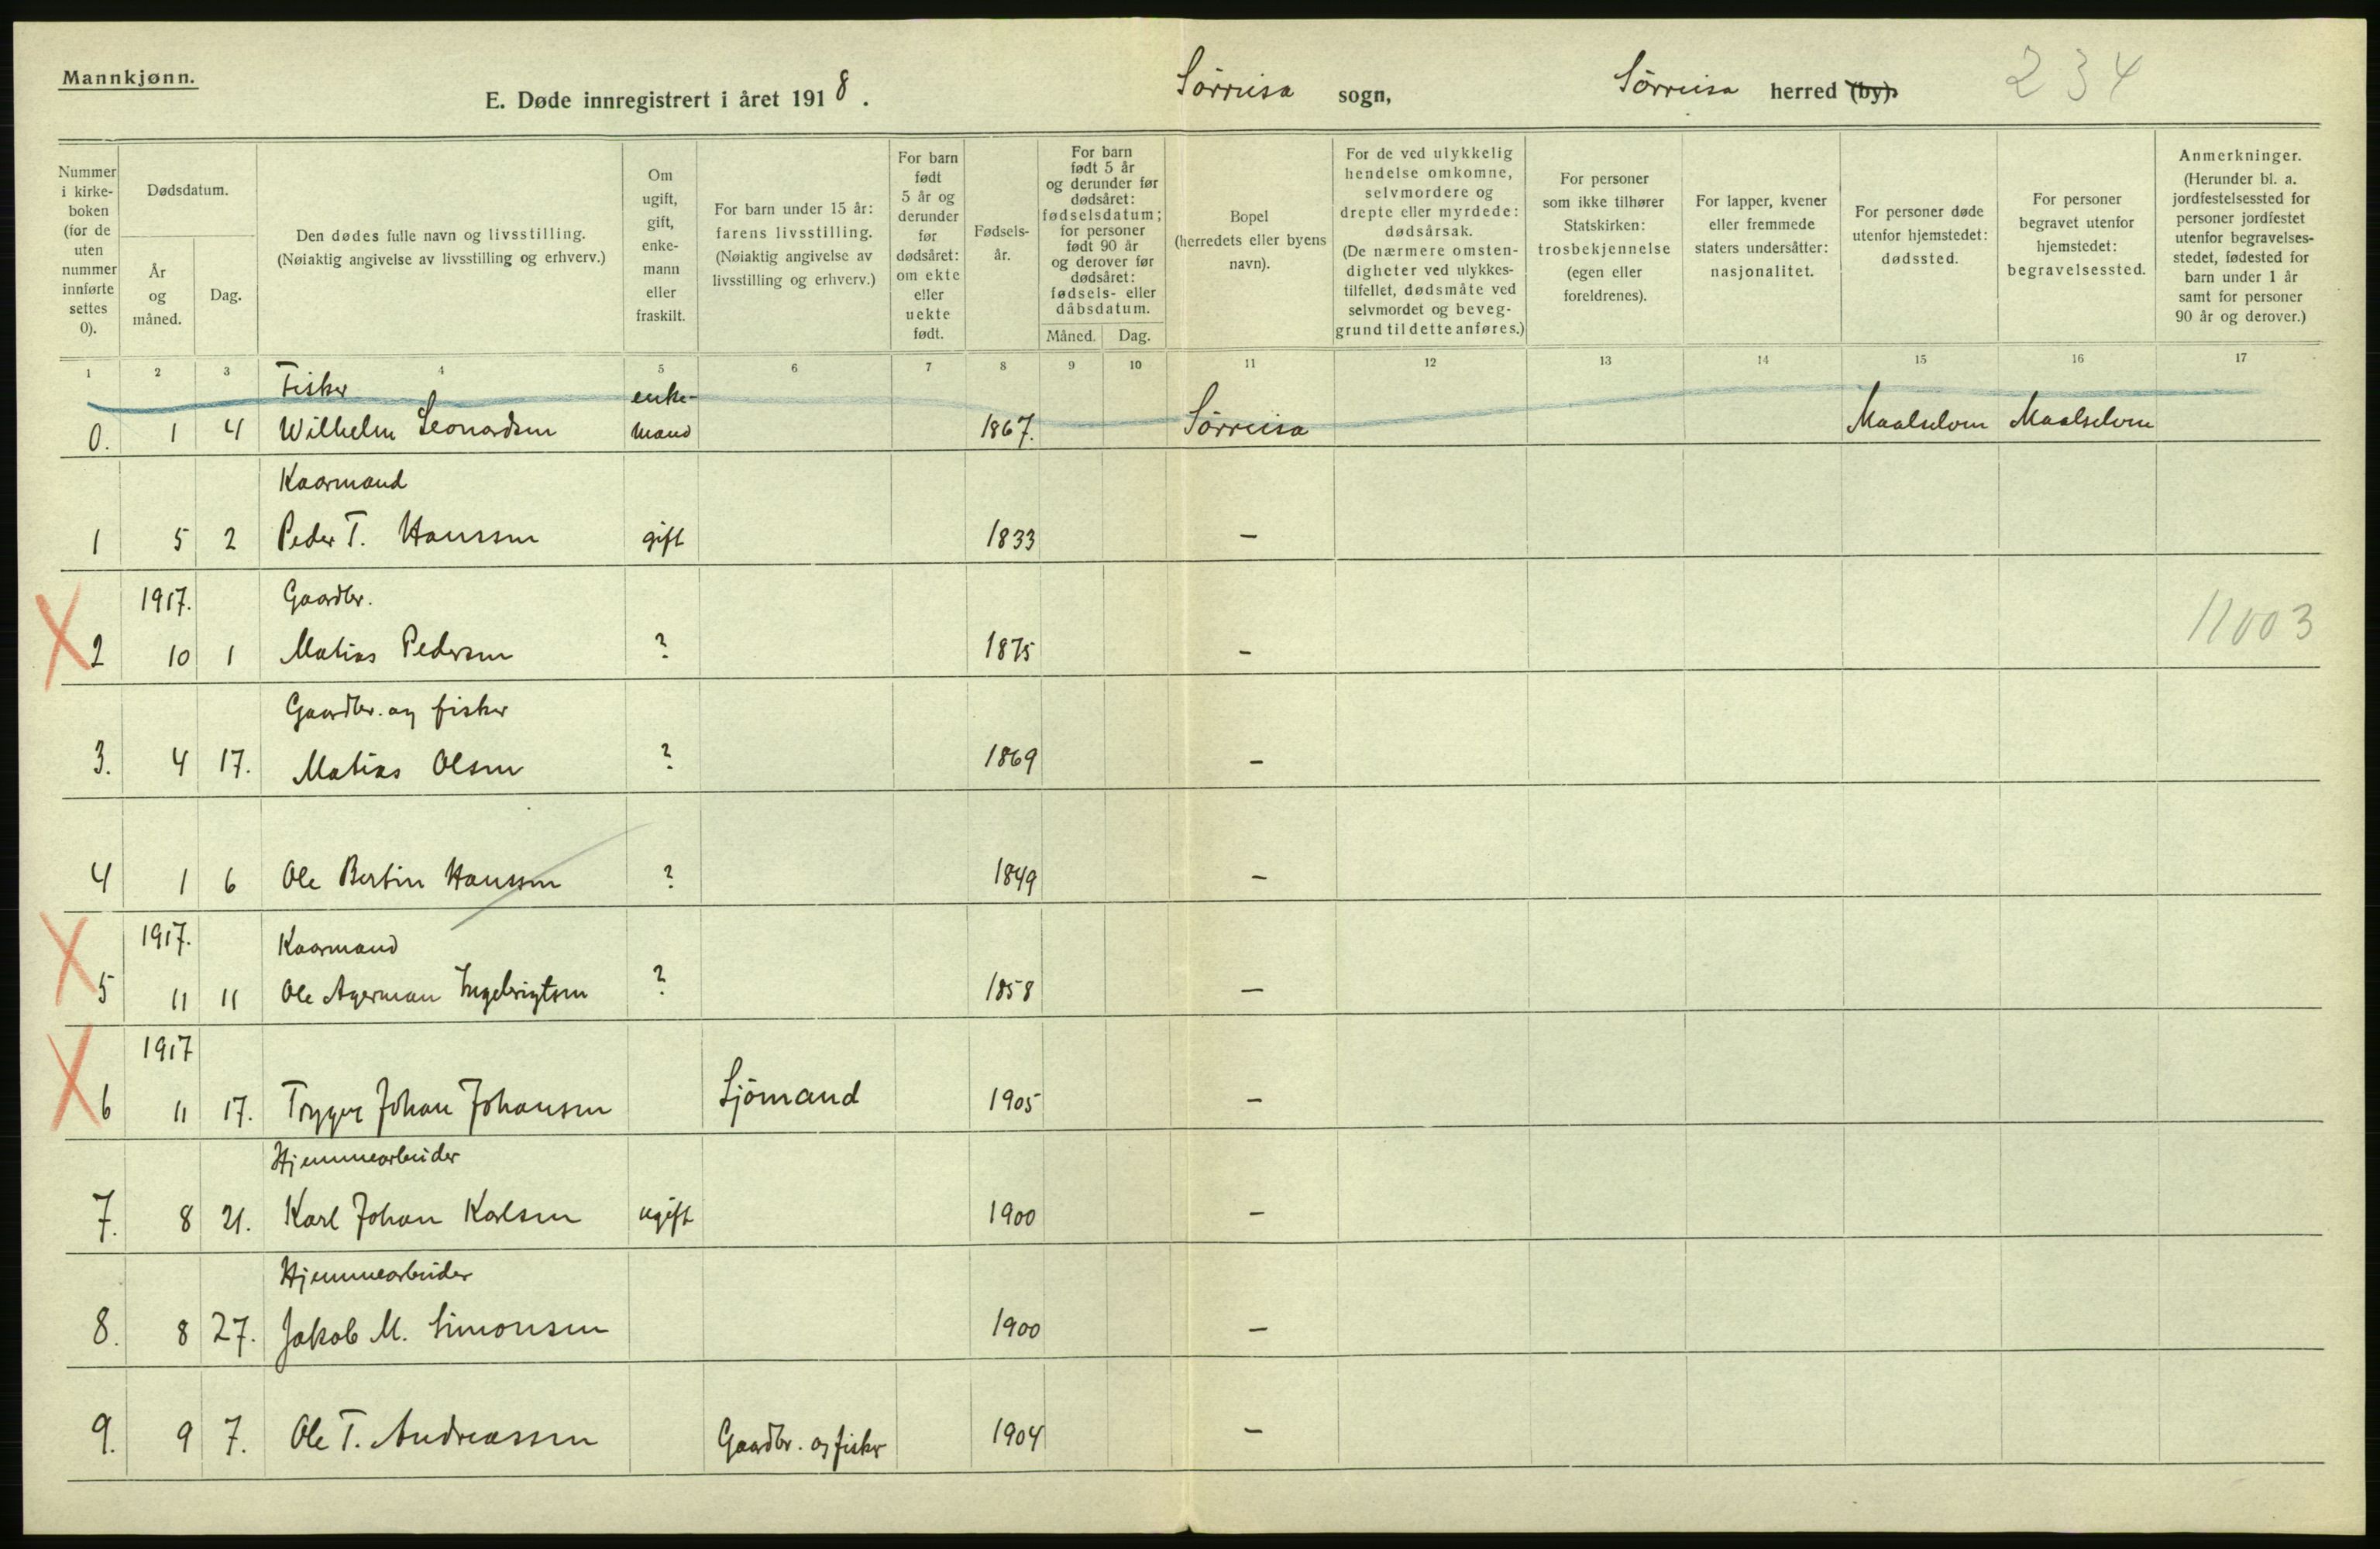 Mannkjønn.
E. Døde innregistrert i året 1918.
Sørreisa sogn,
Sørreisa herred (by).
234
Nummer i kirke-boken (for de uten nummer innførte settes 0).
Dødsdatum.
År og måned.
Dag.
Den dødes fulle navn og livsstilling.
(Nøiaktig angivelse av livsstilling og erhverv.)
Om ugift, gift, enke-mann eller fraskilt.
For barn under 15 år: farens livsstilling.
(Nøiaktig angivelse av livsstilling og erhverv.)
For barn født 5 år og derunder før dødsåret: om ekte eller uekte født.
Fødsels-år.
For barn født 5 år og derunder før dødsåret: fødselsdatum; for personer født 90 år og derover før dødsåret: fødsels- eller dåbsdatum.
Måned.
Dag.
Bopel (herredets eller byens navn).
For de ved ulykkelig hendelse omkomne, selvmordere og drepte eller myrdede: dødsårsak.
(De nærmere omsten-digheter ved ulykkes-tilfellet, dødsmåte ved selvmordet og beveg-grund til dette anføres.)
For personer som ikke tilhører Statskirken: trosbekjennelse (egen eller foreldrenes).
For lapper, kvener eller fremmede staters undersåtter: nasjonalitet.
For personer døde utenfor hjemstedet: dødssted.
For personer begravet utenfor hjemstedet: begravelsessted.
Anmerkninger.
(Herunder bl. a. jordfestelsessted for personer jordfestet utenfor begravelses-stedet, fødested for barn under 1 år samt for personer 90 år og derover.)
1 2 3 4 5 6 7 8 9 10 11 12 13 14 15 16 17
Fisker enke-
0. 1 4 Wilhelm Leonardsen mand 1867. Sørreisa Maalselven Maalselven
Kaarmand
1 5 2 Peder T. Hanssen gift 1833 –
1917. Gaardbr. 11003
X 2 10 1 Matias Pedersen ? 1875 –
Gaardbr. og fisker
3. 4 17. Matias Olsen ? 1869 –
4 1 6 Ole Bertin Hanssen ? 1849 –
1917. Kaarmand
X 5 11 11 Ole Agerman Ingebrigtsen ? 1858 –
1917
X 6 11 17. Trygve Johan Johansen Sjömand 1905 –
Hjemmearbeider
7. 8 21. Karl Johan Karlsen ugift 1900 –
Hjemmearbeider
8. 8 27. Jakob M. Simonsen 1900 –
9. 9 7. Ole T. Andreassen Gaardbr. og fisker 1904 –